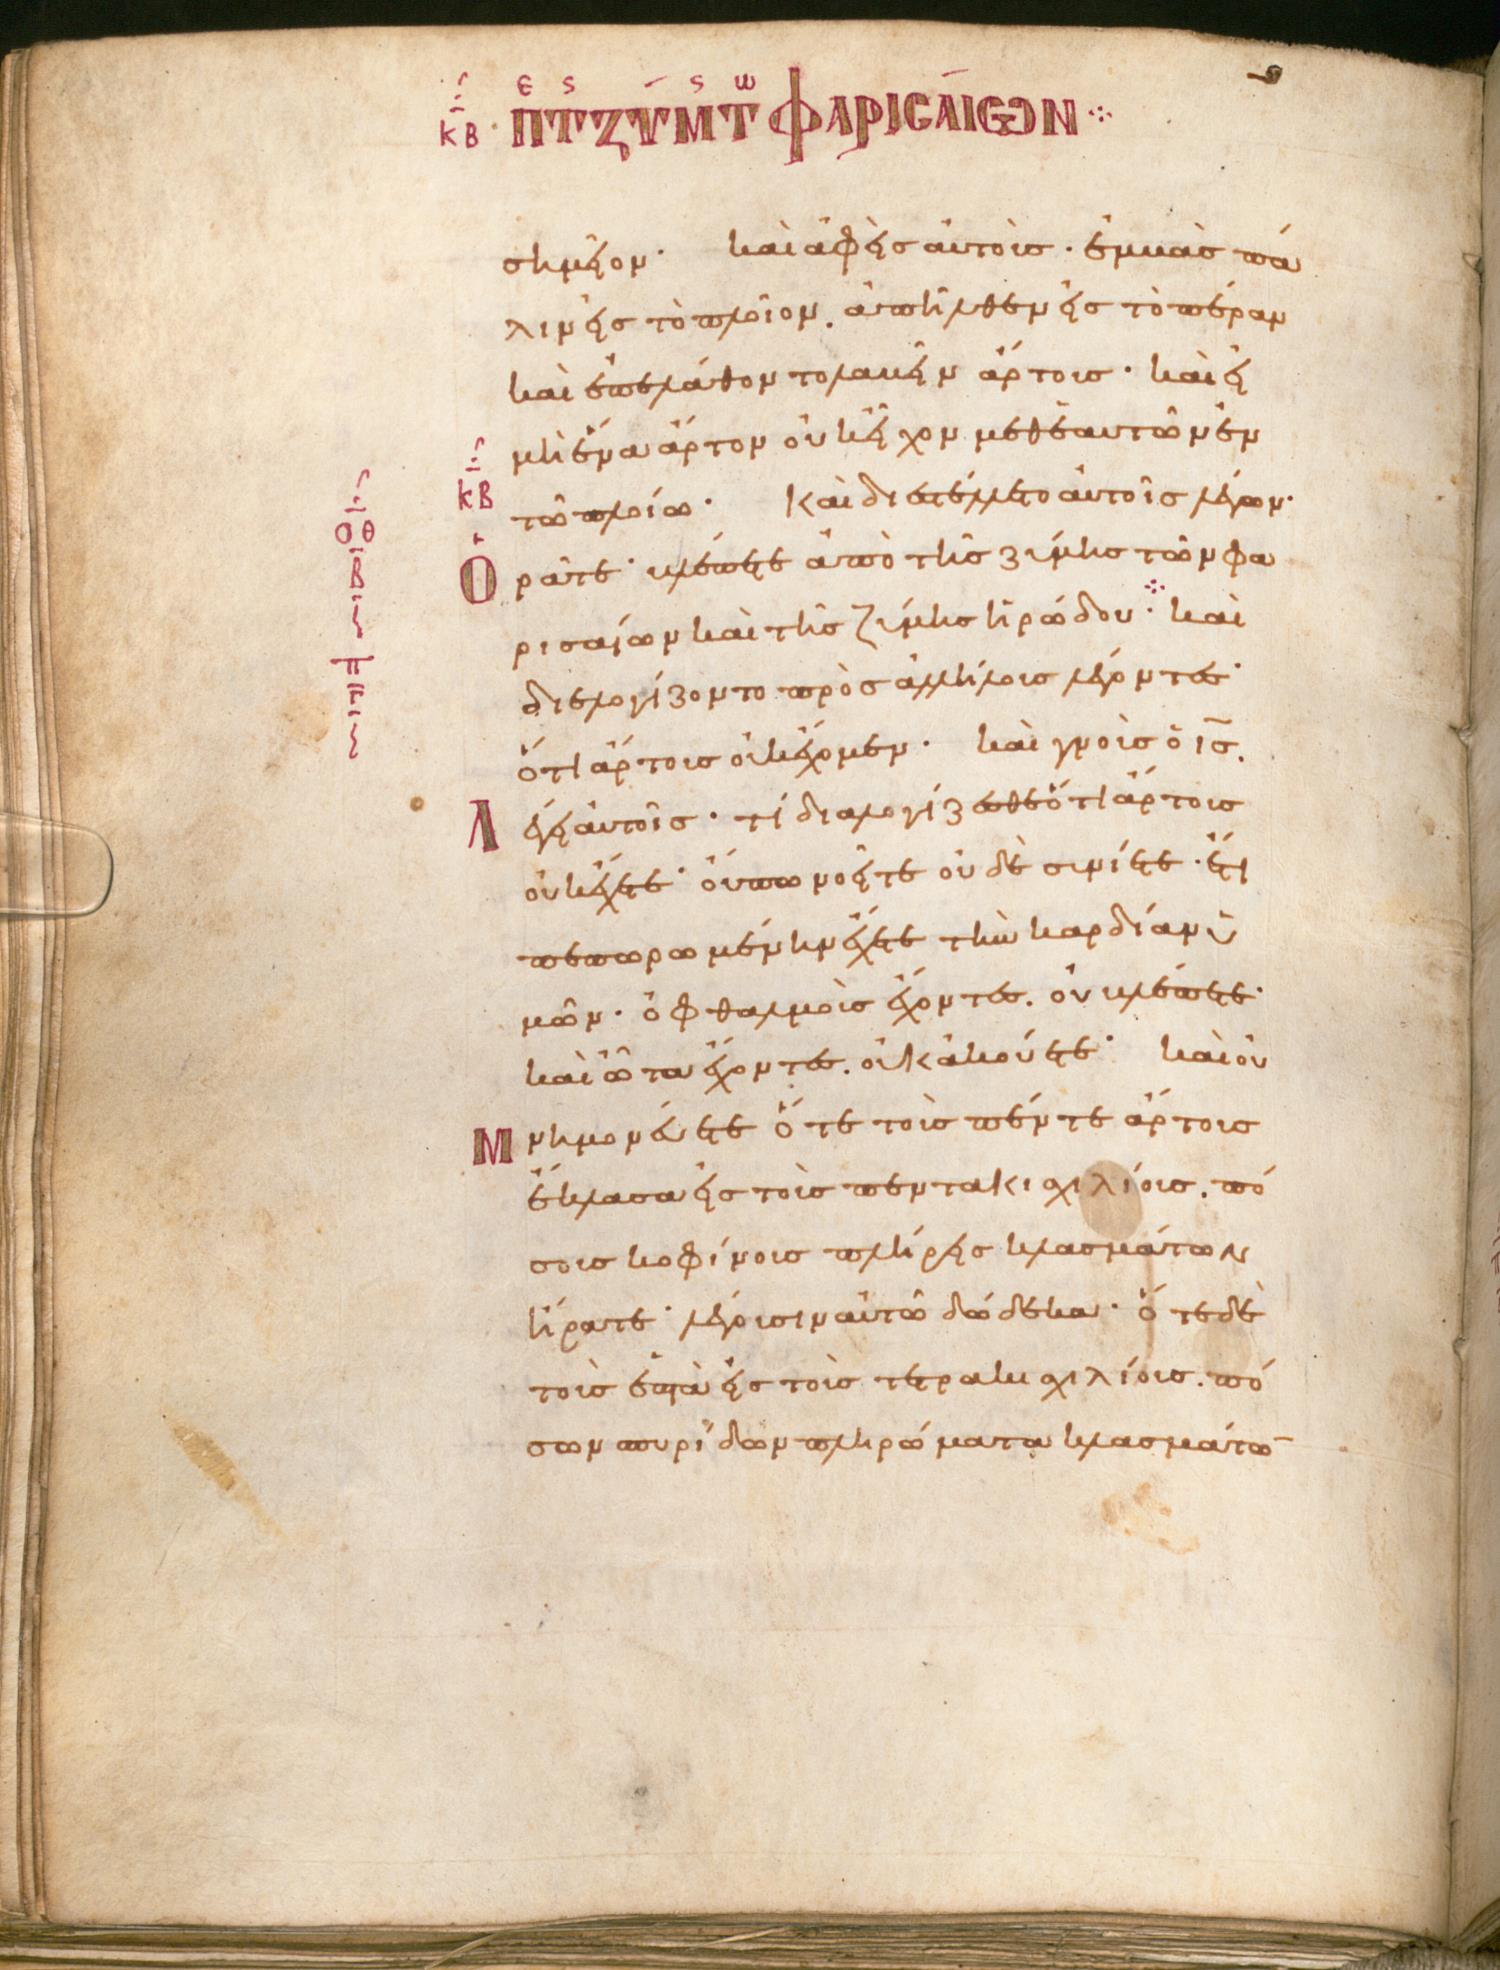 ΚΒ ΠΤΖΥΜΤ ΦΑΡΙCΑΙΩΝ
σημεῖον· καὶ ἀφεὶς αὐτοὶς· ἐμυὰς πά
λιν εἰς τὸ πλοῖον. ἀπῆλθεν εἰς τὸ πέραν
καὶ ἐπελάθοντο λαυεῖν ἄρτοις· καὶ εἰ
μὴ ἕνα ἄρτον οὐκ εἶχον μεθ ἑαυτῶν ἐν
ΚΒ
τῶ πλοίω· Καὶ διεστέλλετο αὐτοῖς λέγων·
ΟΘ
Β
Ὁρᾶτε· υλέπετε ἀπὸ τῆς ζίμης τῶν φα
ρισαίων καὶ τῆς ζίμης ἡρώδου· καὶ
διελογίζοντο πρὸς ἀλλήλοις λέγοντες·
ὅτι ἄρτοις οὐκ ἔχομεν· καὶ γνοὶς ὁ ις.
Λέγει αὐτοῖς· τί διαλογίζεσθε ὅτι ἄρτοις
οὐκ ἔχετε· οὔπω νοεῖτε οὐδὲ σινίετε· ἔτι
πεπωρωμένην ἔχετε τὴν καρδίαν ὑ
μῶν· ὀφθαλμοὶς ἔχοντες. οὐ υλέπετε·
καὶ ὦτα ἔχοντες. οὐκ ἀκούετε· καὶ οὐ
Μνημονεύετε ὅτε τοὶς πέντε ἄρτοις
ἔκλασα εἰς τοὶς πεντακιχιλίοις. πό
σοις κοφίνοις πλήρεις κλασμάτων
ἤρατε· λέγοισιν αὐτῶ δώδεκα· ὅτε δὲ
τοὶς ἑπτὰ εἰς τοὶς τετρακιχιλίοις. πό
σων σπυρίδων πληρώματα κλασμάτω̄